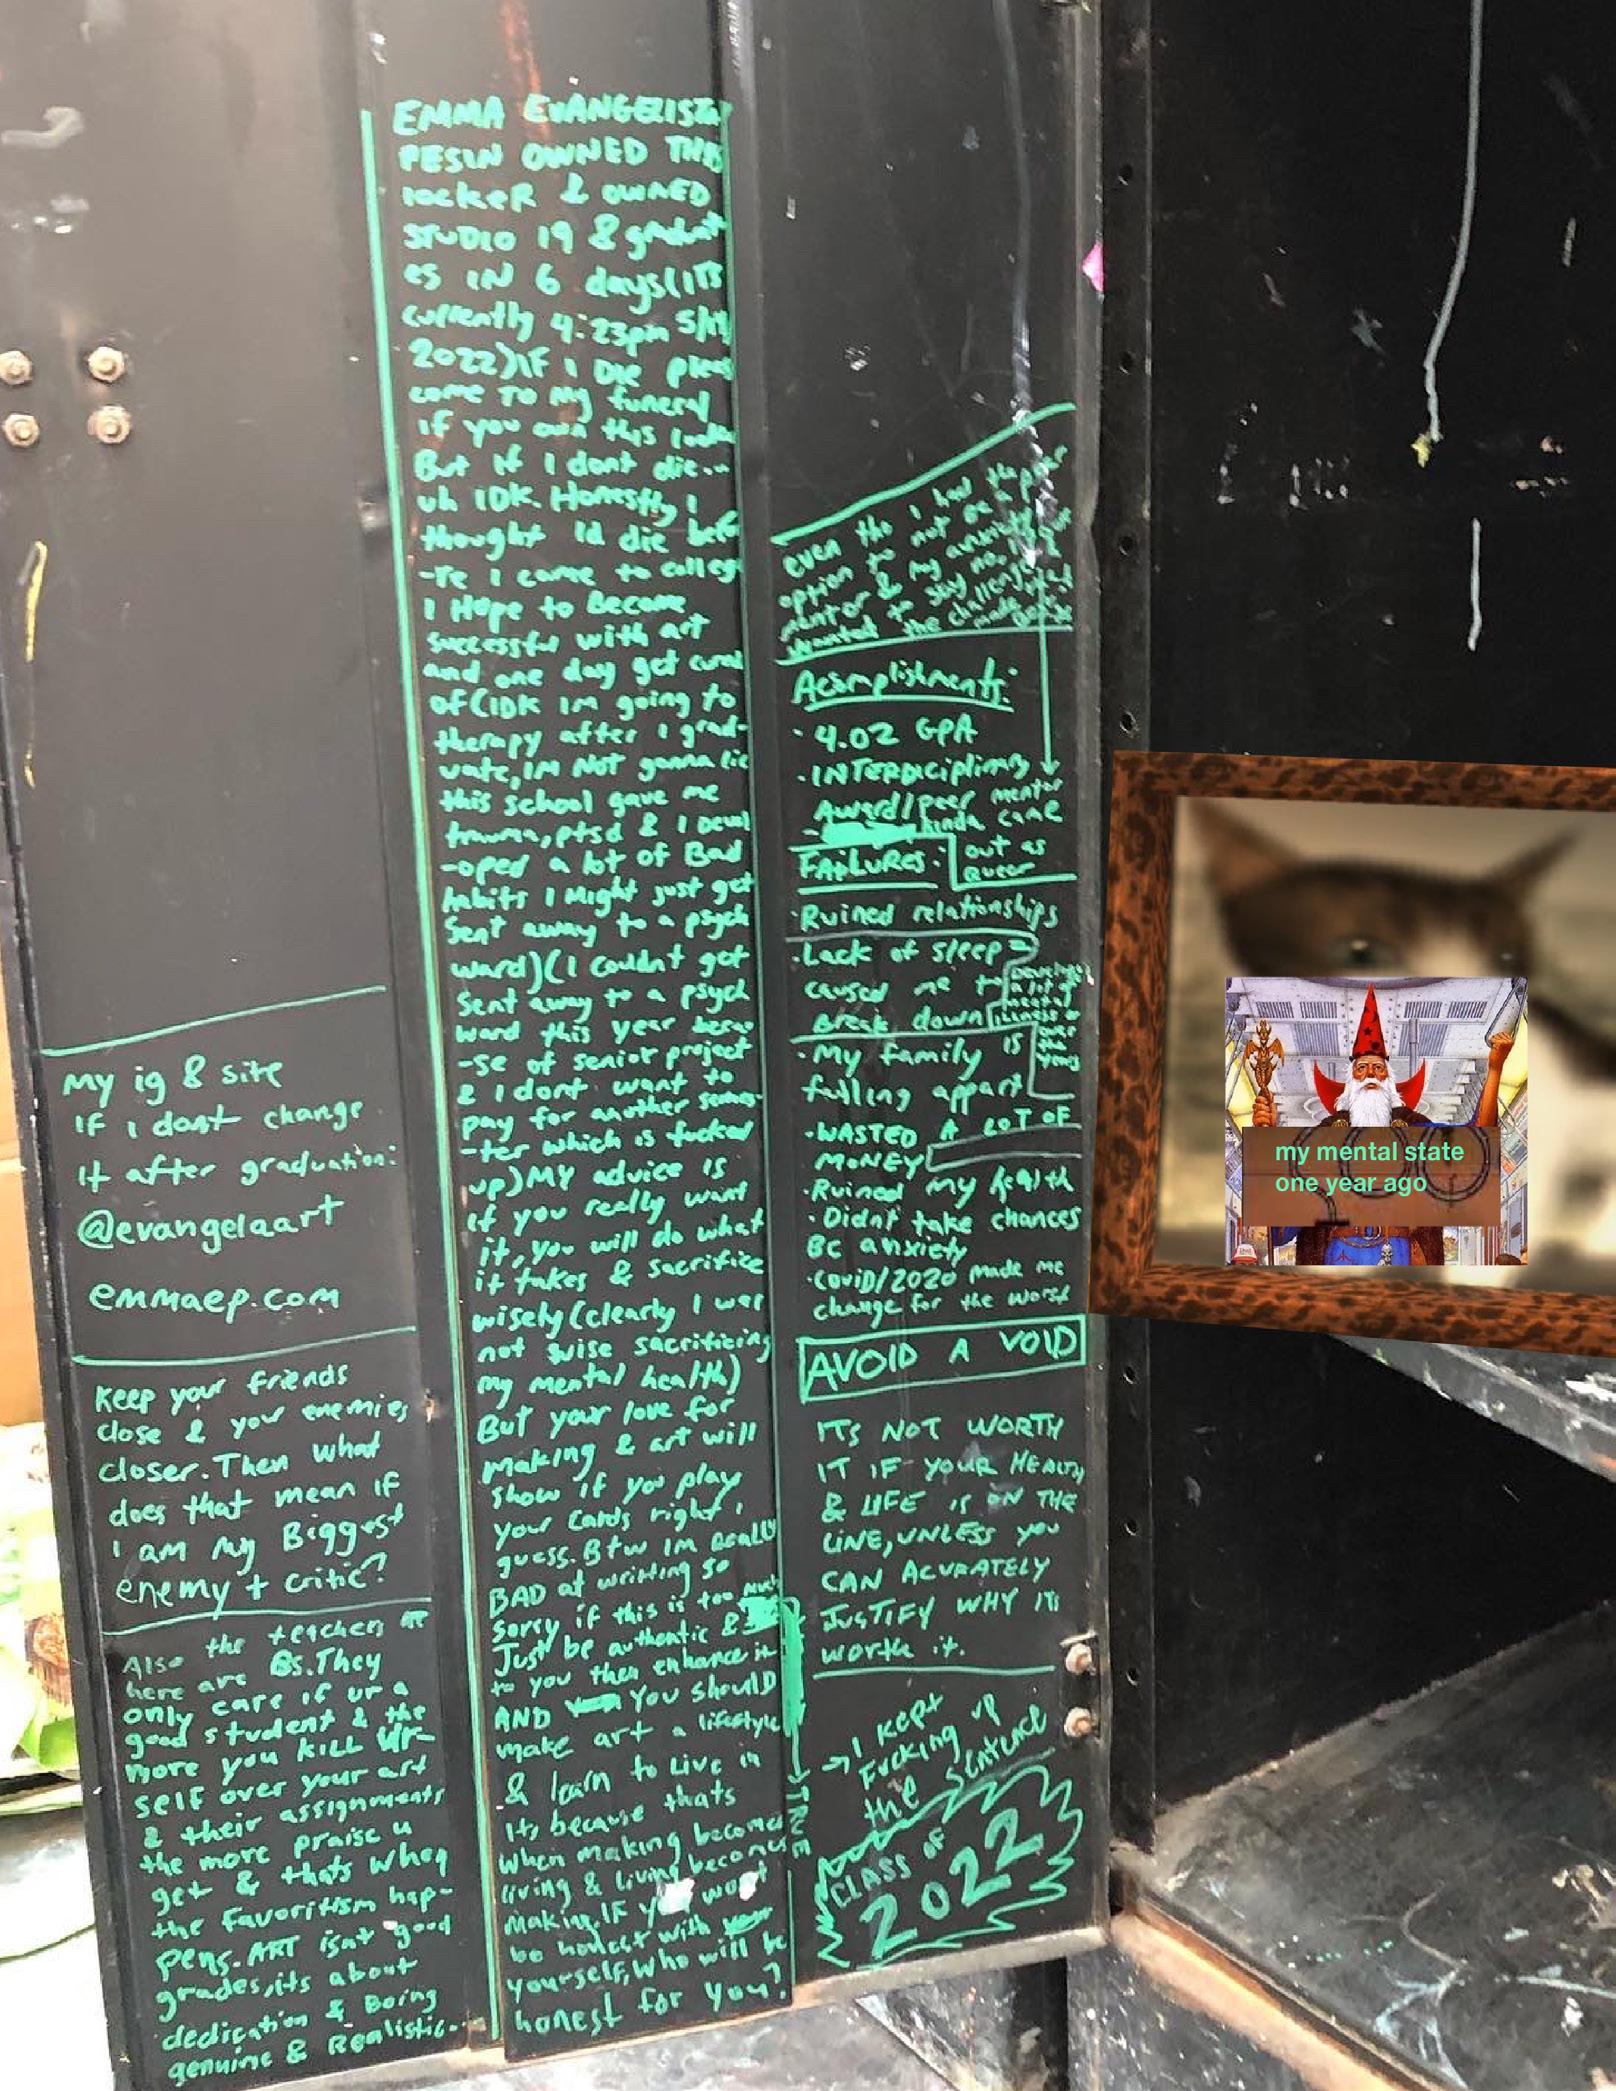 EMMA EVANGELISTA
PESIN OWNED THIS
LOCKER & OWNED
STUDIO 19 & graduat
es IN 6 days(ITS
currently 4:23pm
2022)IF I DIE pleas
come TO My funeral
if you own this locke
But if I dont die...
uh IDK. Honestly, I
thought Id die befo
-re I came to colleg
I Hope to Become
successful with art
and one day get cured
of(IDK IM going to
therapy after I grad-
uate, IM NOT gonna lie
this school gave me
trauma, ptsd & I Devel
-oped a lot of Bad
habits I Might just get
Sent away to a psych
ward)(I couldn't get
sent away to a psych
ward this year becau
-se of senior project
& I dont want to
pay for another semes-
-ter which is fucked
up)MY advice is
if you really want
it, you will do what
it takes & sacrifice
wisely(clearly I was
not wise sacrificing
my mental health)
But your love for
making & art will
show if you play
your cards right, I
guess. Btw IM REALLY
BAD at writting so
sorry if this is too much
Just be authentic &
to you then enhance it
AND You should
make art a lifestyle
& learn to live in
it, because thats
when making becomes
living & living becomes
making. IF you wont
be honest with
yourself, who will be
honest for you?
My ig & site
if I dont change
it after graduation:
@evangelaart
emmaep.com
Keep your friends
close & your enemies
closer. Then what
does that mean if
I am my Biggest
enemy + critic?
Also the teachers at
here are BS. They
only care if ur a
good student & the
more you kill ur-
self over your art
& their assignments
the more praise u
get & thats when
the favoritism hap-
pens. ART isnt good
grades, its about
dedication & Being
genuine & Realistic.
even tho I had the
option to not be a peer
mentor & my anxiety
wanted to say no,
the challenge
made
Acomplishments:
· 4.02 GPA
· INTERDiciplinary
Award/peer mentor
- kinda came
out as
Queer
FAILURES:
· Ruined relationships
· Lack of sleep
caused me to
Break down
Developed
a lot of
mental
illness
over
the
years
· My family is
falling appart
· WASTED A LOT OF
MONEY
· Ruined my health
· Didnt take chances
Bc anxiety
· COVID/2020 made me
change for the worst
AVOID A VOID
ITS NOT WORTH
IT IF YOUR HEALTH
& LIFE IS ON THE
LINE, UNLESS you
CAN ACURATELY
JUSTIFY WHY ITS
worth it.
→ I kept
Fucking up
the Sentence
CLASS OF
2022
TRUE
my mental state
one year ago